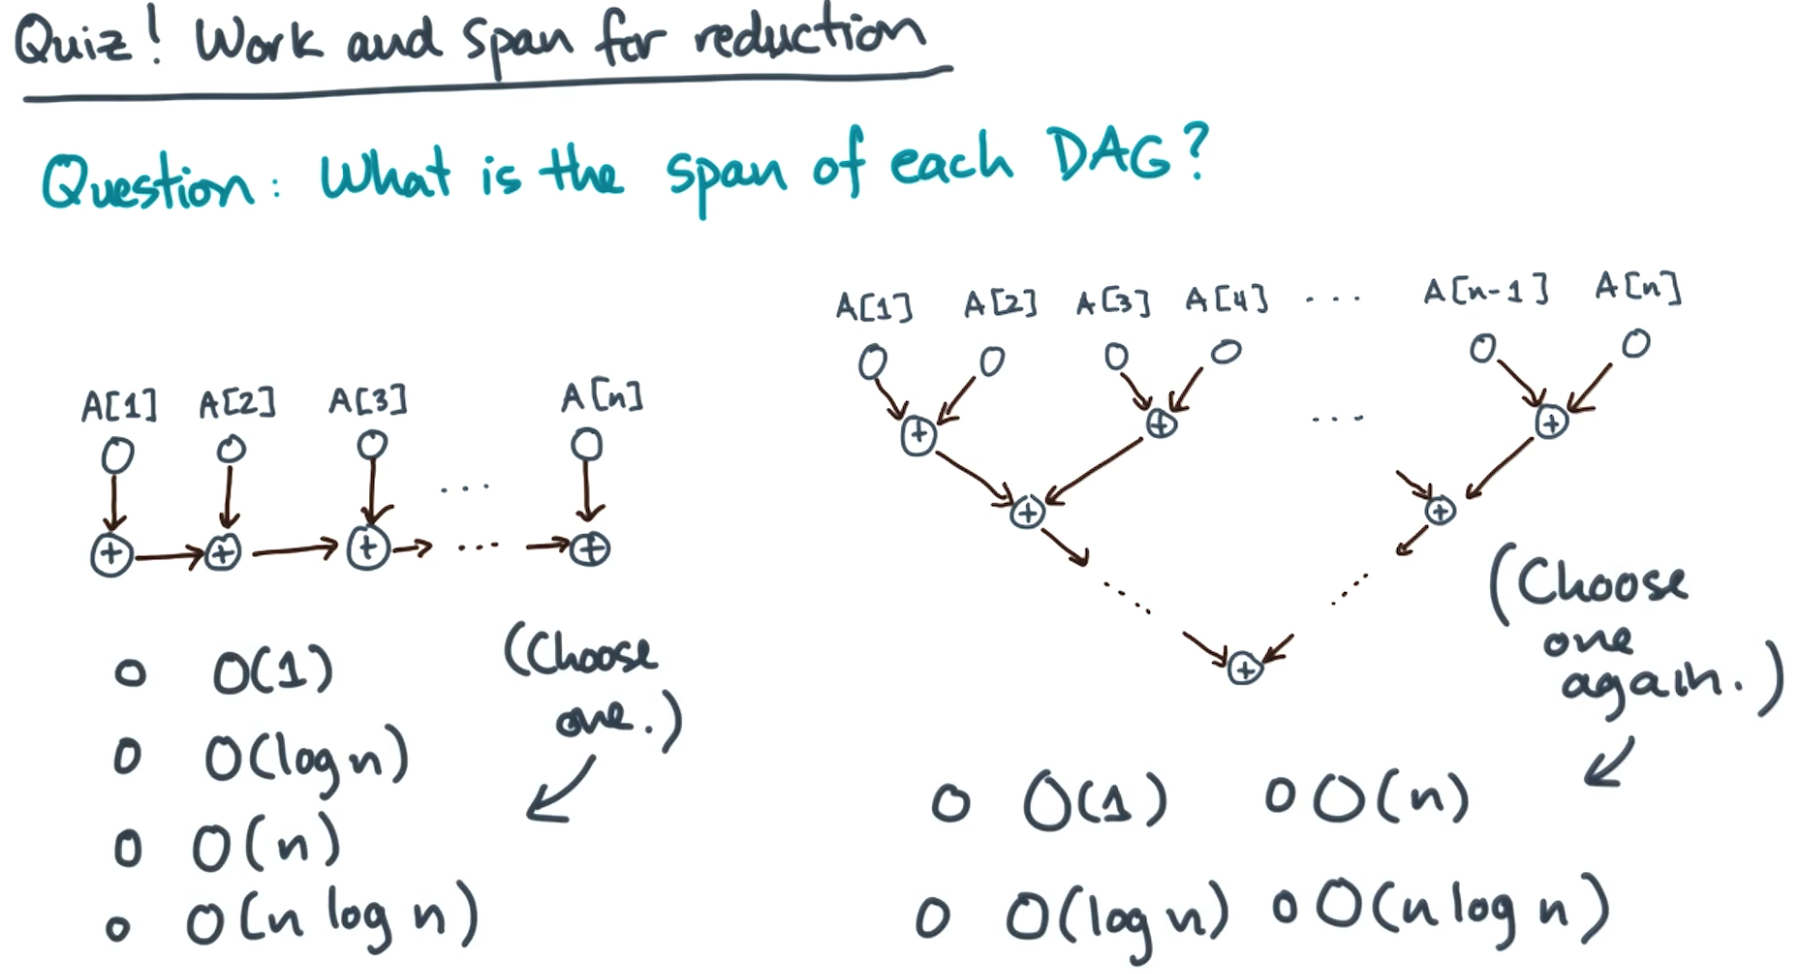 Quiz! Work and span for reduction
Question: What is the span of each DAG?
A[1] A[2] A[3] ... A[n]
+ + + ... +
O(1)
O(log n)
O(n)
O(n log n)
(Choose
one.)
A[1] A[2] A[3] A[4] ... A[n-1] A[n]
+ + ... +
+ +
+
(Choose
one
again.)
O(1) O(n)
O(log n) O(n log n)